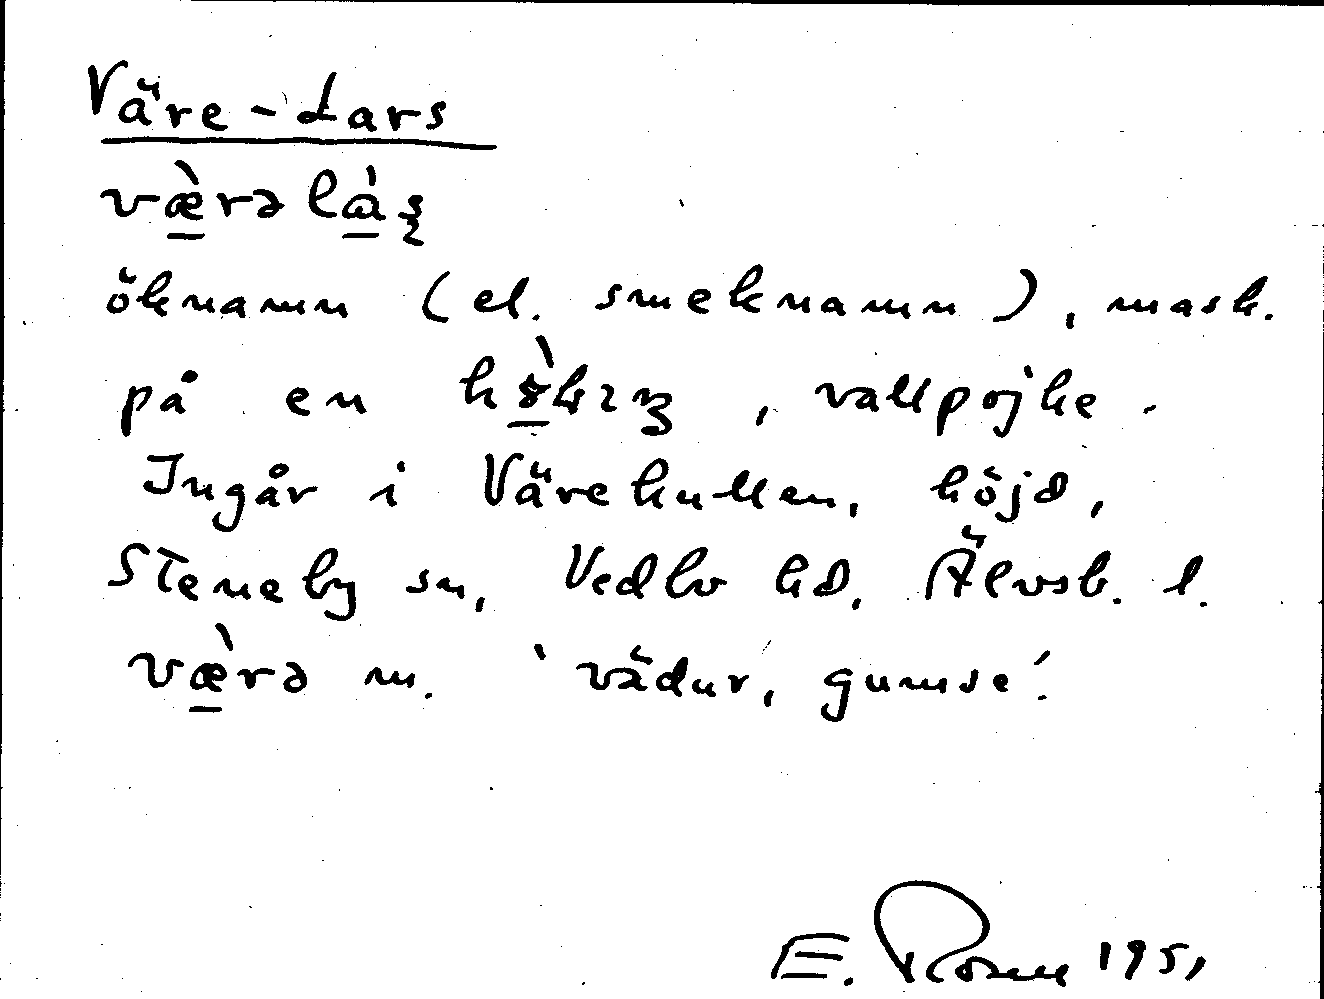 Väre-Lars
væ̀rə là̱ʂ
öknamn (el. smeknamn), mask.
på en , vallpojke.
Ingår i Värekullen, höjd,
Steneby sn, Vedbo hd, Älvsb. l.
væ̀rə m. 'vädur, gumse'.
E. Rosén 1951